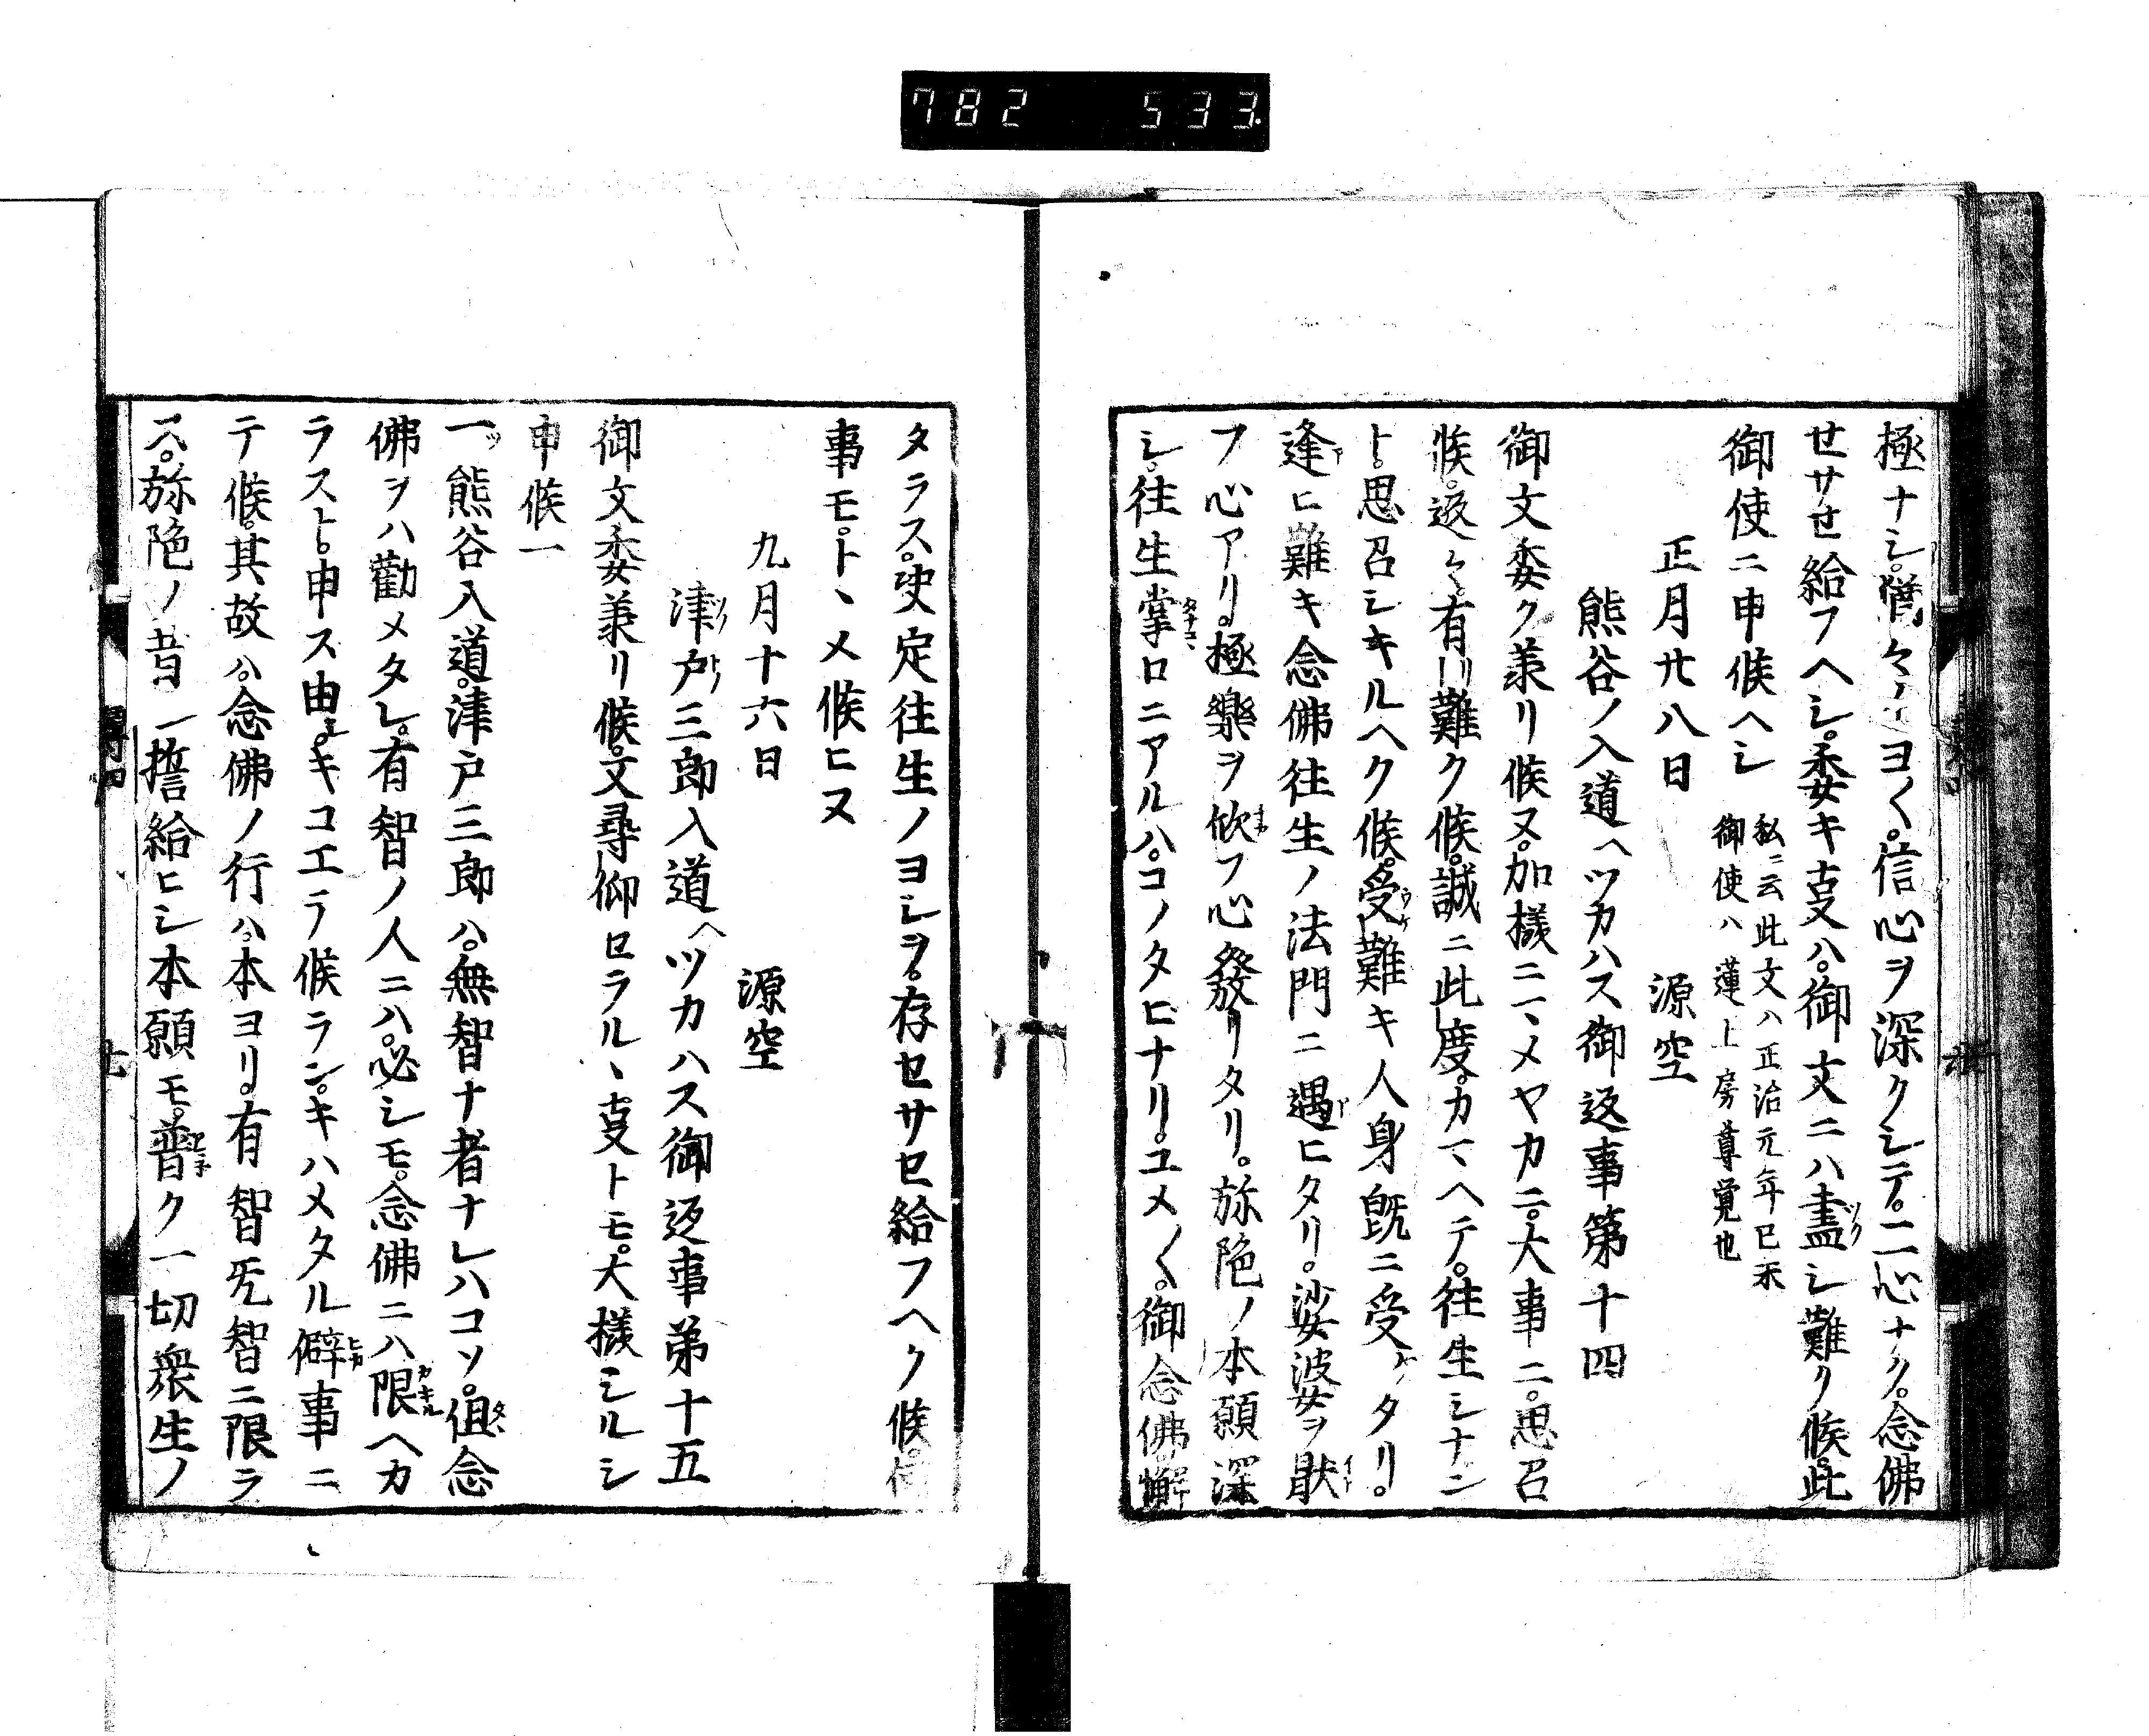 782 533.
極ナシ。憑々ヨク〳〵。信心ヲ深クシテ。二心ナク。念佛
せサせ給フヘシ。委キ㕝ハ。御文ニハ盡シ難ク候。此
御使ニ申候ヘシ 私ニ云此文ハ正治元年已未
御使ハ蓮上房尊覚也
正月廿八日 源空
熊谷ノ入道ヘツカハス御返事第十四
御文委ク兼リ候ヌ。加様ニマメヤカニ。大事ニ。思召
候。返々有リ難ク候。誠ニ此度。カマヘテ。往生シナン
ト。思召シキルヘク候。受難キ人身既ニ受ケタリ。
逢ヒ難キ念佛往生ノ法門ニ遇ヒタリ。娑婆ヲ厭
フ心アリ。極樂ヲ欣フ心發リタリ。弥陀ノ本願深
シ。往生掌ロニアルハ。コノタヒナリ。ユメ〳〵。御念佛。懈
タラス。决定往生ノヨシヲ。存セサセ給フヘク候。何
事モ。トヽメ候ヒヌ
九月十六日 源空
津戸三郎入道ヘツカハス御返事第十五
御文委兼リ候。又尋仰セラルヽ㕝トモ。大様シルシ
申候
一 熊谷入道。津戸三郎ハ。無智ナ者ナレハコソ。但念
佛ヲハ勸メタレ。有智ノ人ニハ。必シモ。念佛ニハ限ヘカ
ラスト。申ス由。キコエテ候ラン。キハメタル僻事ニ
テ候。其故ハ。念佛ノ行ハ。本ヨリ。有智旡智ニ限ラ
ス。弥陀ノ昔誓給ヒシ本願モ。普ク一切衆生ノ